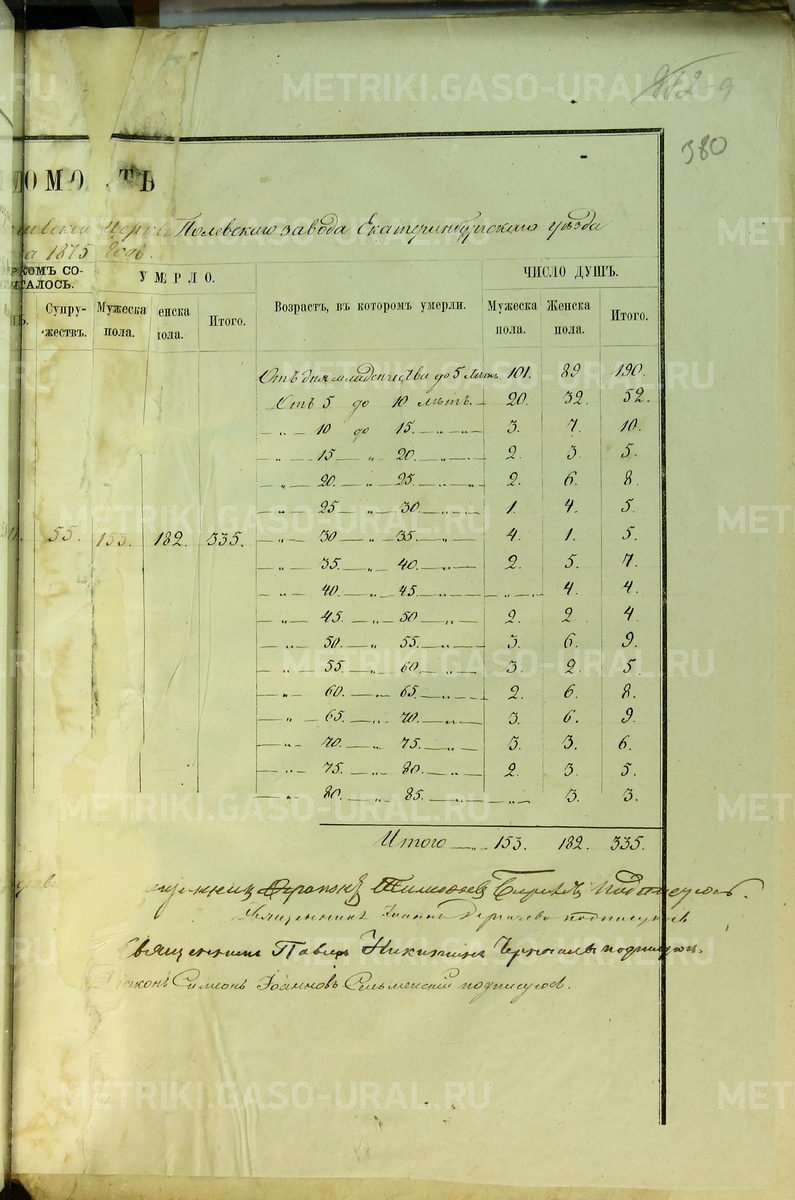 METRIKI.GASO-URAL.RU
380
ДОМО ТЬ
Полевскаго завода Екатеринбургскаго уѣзда
1875 годъ.
КОМЪ СО-
АЛОСЬ.
Супру-
жествъ.
УМЕРЛО.
Мужеска
пола.
енска
пола.
Итого.
Возрастъ, въ которомъ умерли.
ЧИСЛО ДУШЪ.
Мужеска
пола.
Женска
пола.
Итого.
55. 153. 182. 335.
Отъ дня младенчества до 5 лѣтъ 101. 89 190.
Отъ 5 до 10 лѣтъ. 20. 32. 52.
„ 10 до 15. „ „ 3. 7. 10.
„ 15 „ 20. „ „ 2. 3. 5.
„ 20. „ 25. „ „ 2. 6. 8.
„ 25 „ 30 „ „ 1. 4. 5.
„ 30 „ 35. „ „ 4. 1. 5.
„ 35. „ 40. „ „ 2. 5. 7.
„ 40. „ 45. „ „ „ 4. 4.
„ 45. „ 50 „ 2. 2 4
„ 50. „ 55. „ „ 3. 6. 9.
„ 55. „ 60. „ „ 3. 2. 5.
„ 60. „ 65. „ „ 2. 6. 8.
„ 65. „ 70. „ 3. 6. 9.
„ 70. „ 75. „ 3. 3. 6.
„ 75. „ 80. „ 2. 3. 5.
„ 80. „ 85. „ „ 3. 3.
Итого „ 153. 182. 335.
подписуюсь.
Священникъ Іоаннъ подписуюсь
Священникъ Павелъ Никитинъ подписуюсь.
Симеонъ Іоанновъ подписуюсь.